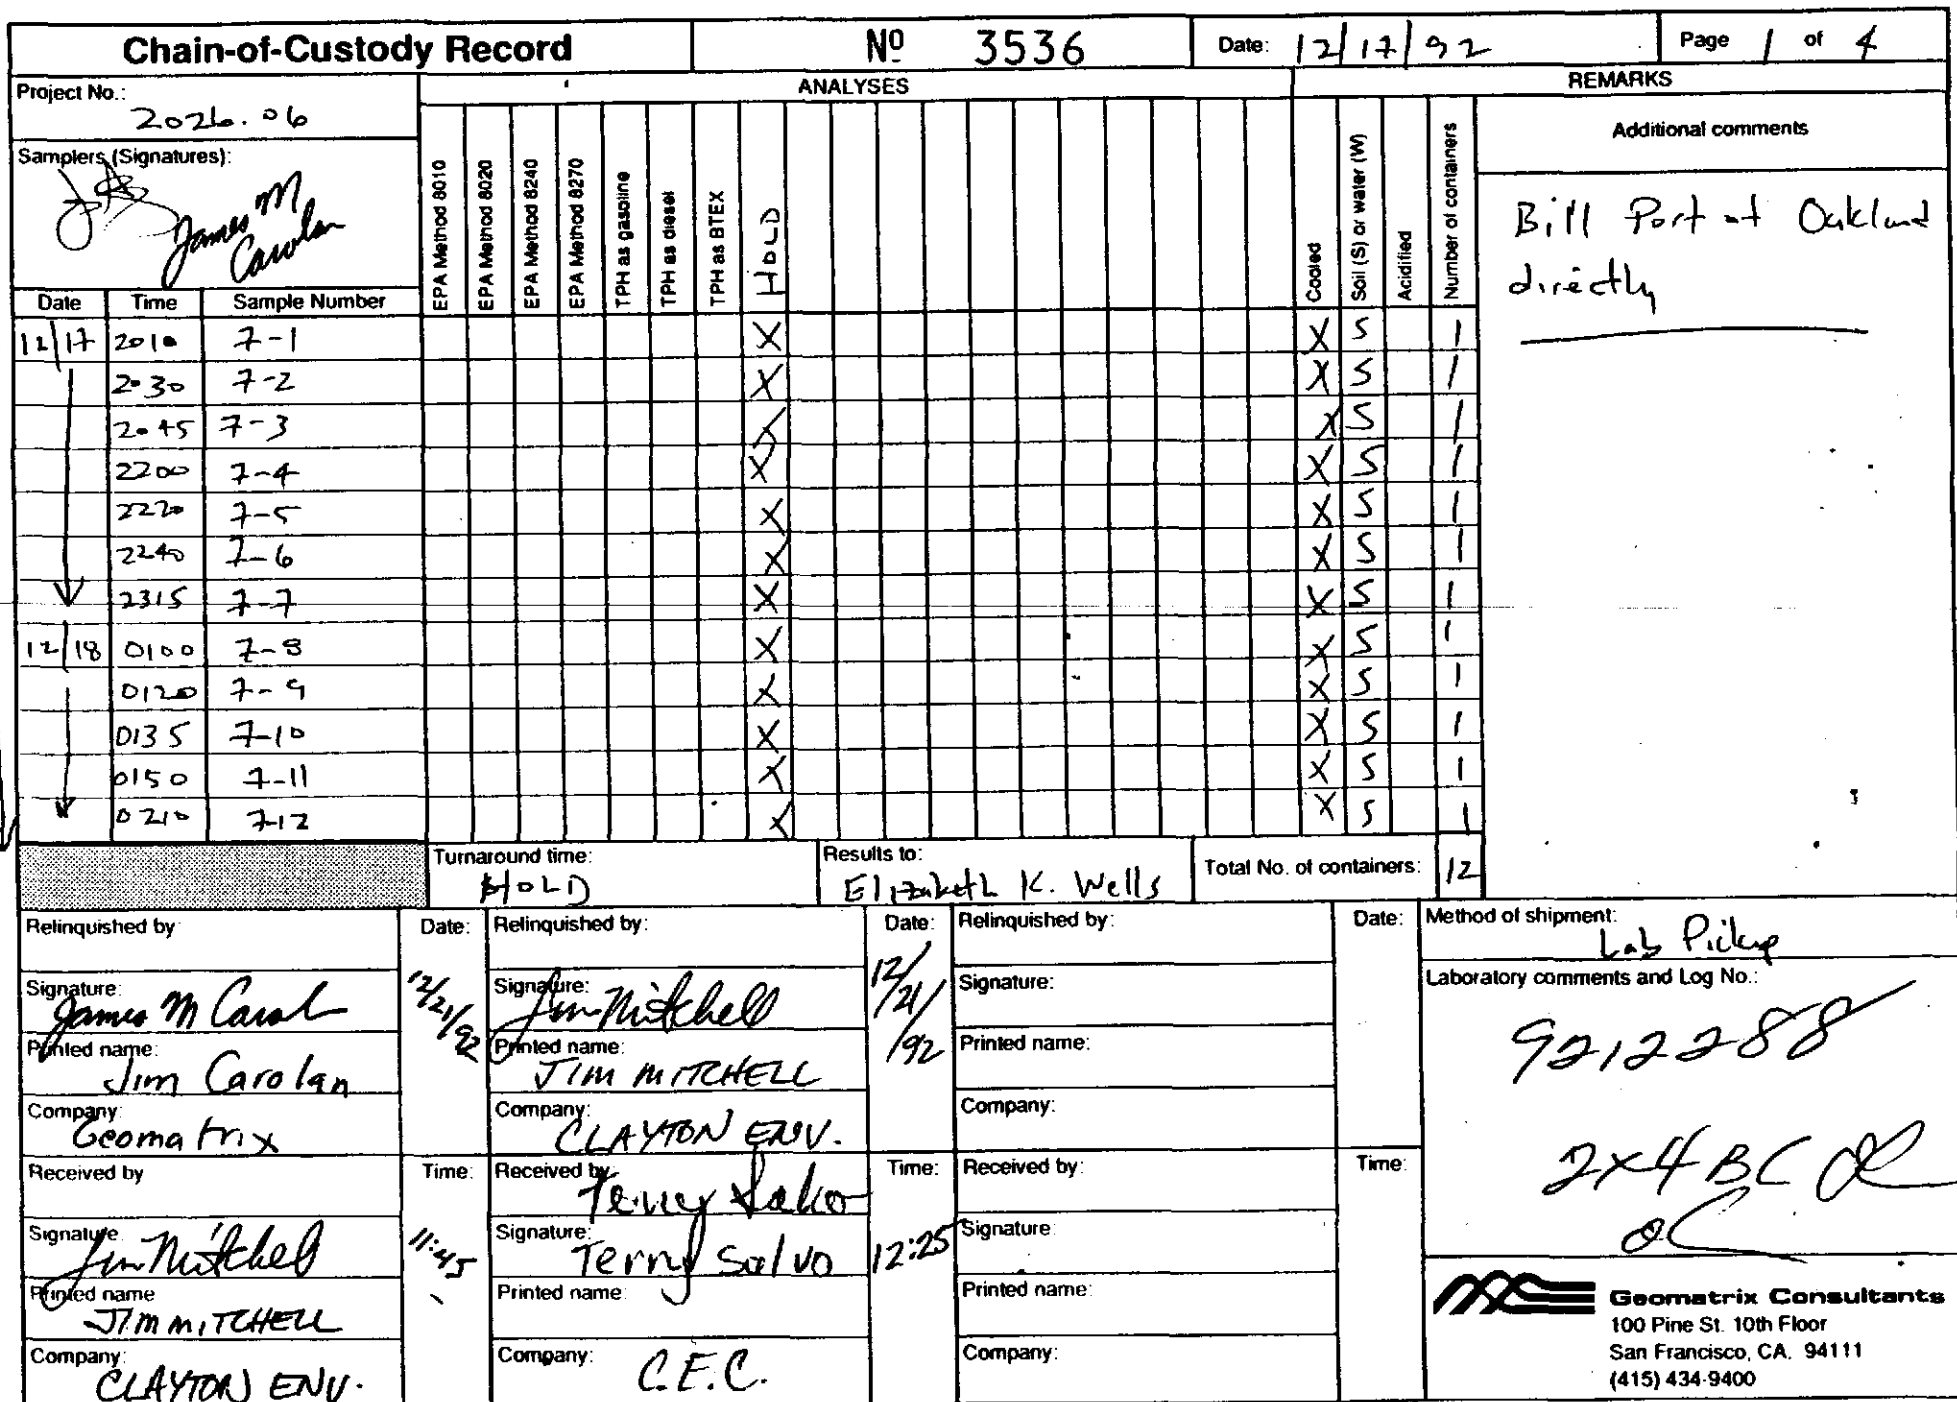 Chain-of-Custody Record
Nº 3536
Date: 12/17/92
Page 1 of 4
Project No.:
2026.06
ANALYSES
REMARKS
Samplers (Signatures):
James M
Carolan
EPA Method 8010
EPA Method 8020
EPA Method 8240
EPA Method 8270
TPH as gasoline
TPH as diesel
TPH as BTEX
HOLD
Cooled
Soil (S) or water (W)
Acidified
Number of containers
Additional comments
Bill Port of Oakland
directly
Date Time Sample Number
12/17 2010 7-1 X X S 1
2030 7-2 X X S 1
2045 7-3 X X S 1
2200 7-4 X X S 1
2220 7-5 X X S 1
2240 7-6 X X S 1
2315 7-7 X X S 1
12/18 0100 7-8 X X S 1
0120 7-9 X X S 1
0135 7-10 X X S 1
0150 7-11 X X S 1
0210 7-12 X X S 1
Turnaround time:
HOLD
Results to:
Elizabeth K. Wells
Total No. of containers: 12
Relinquished by:
Signature:
James M Carol
Printed name:
Jim Carolan
Company:
Geomatrix
Date:
12/21/92
Received by
Signature
Jim Mitchell
Printed name
JIM MITCHELL
Company:
CLAYTON ENV.
Time:
11:45
Relinquished by:
Signature:
Jim Mitchell
Printed name:
JIM MITCHELL
Company:
CLAYTON ENV.
Date:
12/21/92
Received by
Terry
Signature:
Terry Salvo
Printed name:
Company:
C.E.C.
Time:
12:25
Relinquished by:
Signature:
Printed name:
Company:
Date:
Received by:
Signature
Printed name:
Company:
Time:
Method of shipment:
Lab Pickup
Laboratory comments and Log No.:
9212288
2x4 BC
Geomatrix Consultants
100 Pine St. 10th Floor
San Francisco, CA. 94111
(415) 434-9400